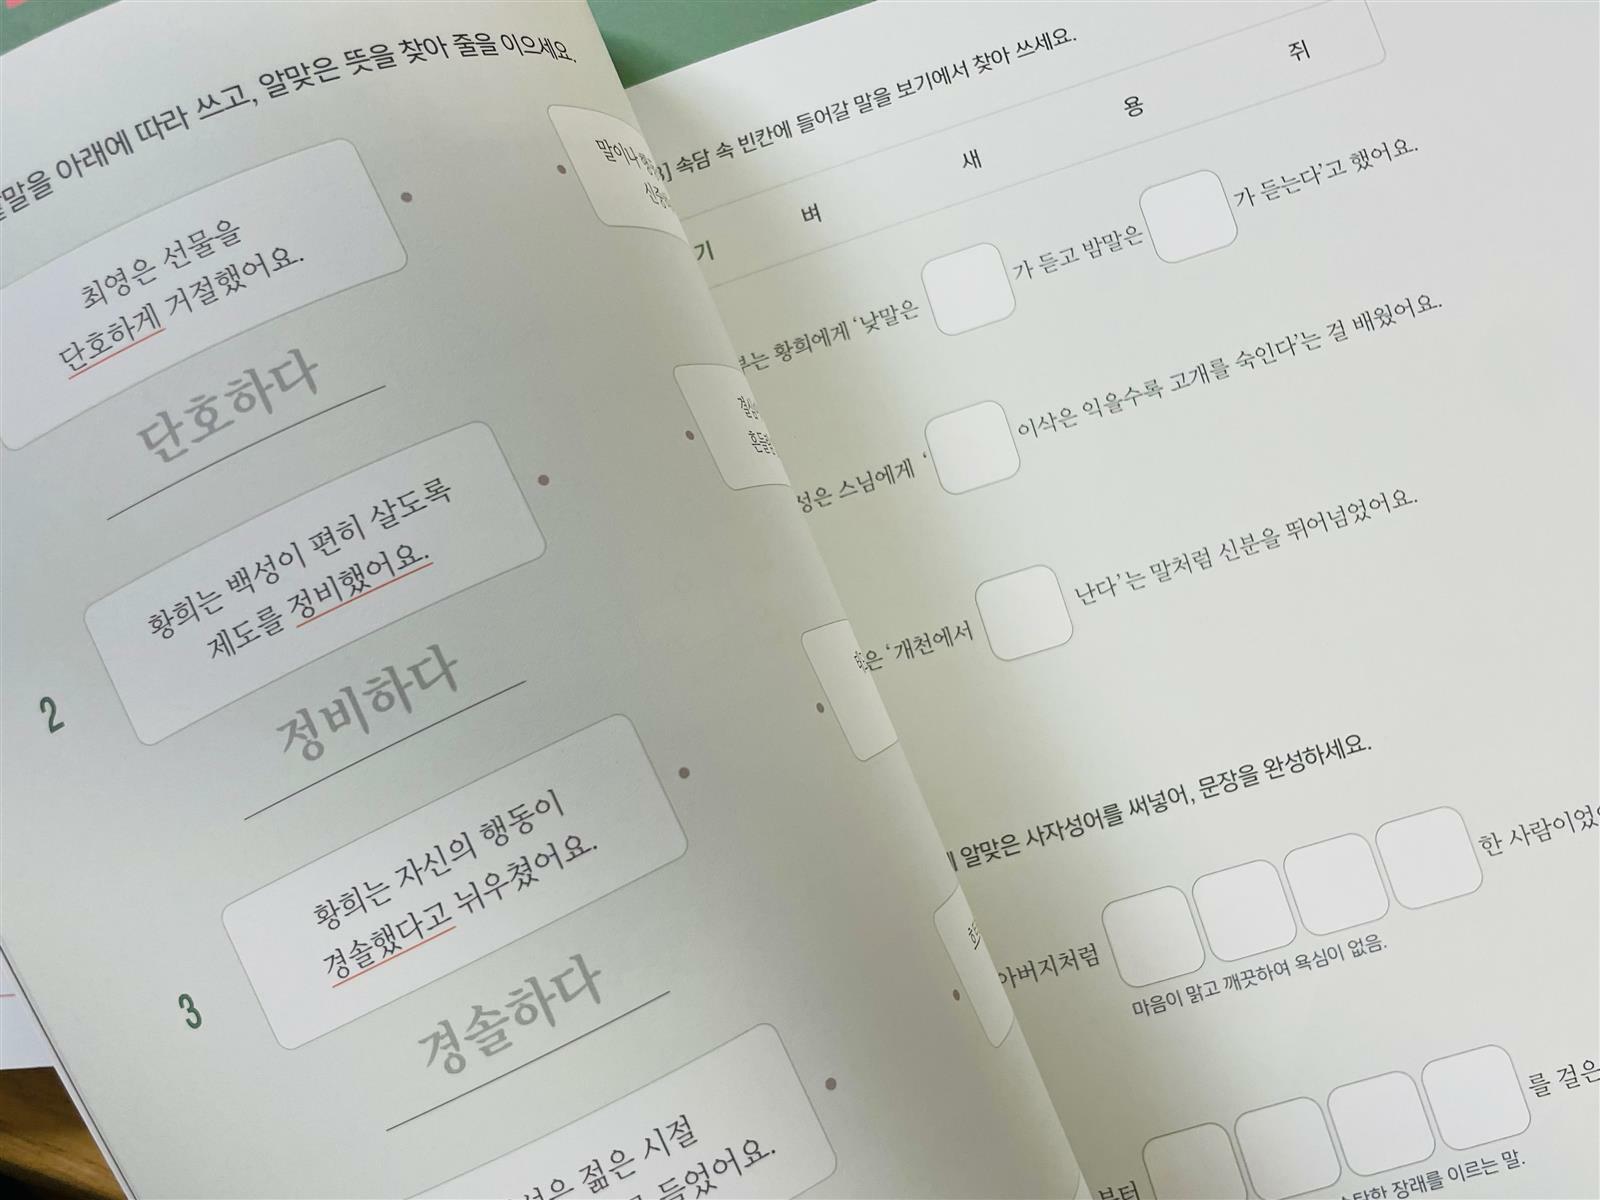 아래에 따라 쓰고, 알맞은 뜻을 찾아 줄을 이으세요.
최영은 선물을
단호하게 거절했어요.
단호하다
2
황희는 백성이 편히 살도록
제도를 정비했어요.
정비하다
3
황희는 자신의 행동이
경솔했다고 뉘우쳤어요.
경솔하다
젊은 시절
들었어요.
말이나
속담 속 빈칸에 들어갈 말을 보기에서 찾아 쓰세요.
기 벼 새 용 쥐
황희에게 ‘낮말은 가 듣고 밤말은 가 듣는다’고 했어요.
스님에게 ‘ 이삭은 익을수록 고개를 숙인다’는 걸 배웠어요.
‘개천에서 난다’는 말처럼 신분을 뛰어넘었어요.
알맞은 사자성어를 써넣어, 문장을 완성하세요.
아버지처럼 한 사람이었
마음이 맑고 깨끗하여 욕심이 없음.
부터 를 걸은
장래를 이르는 말.